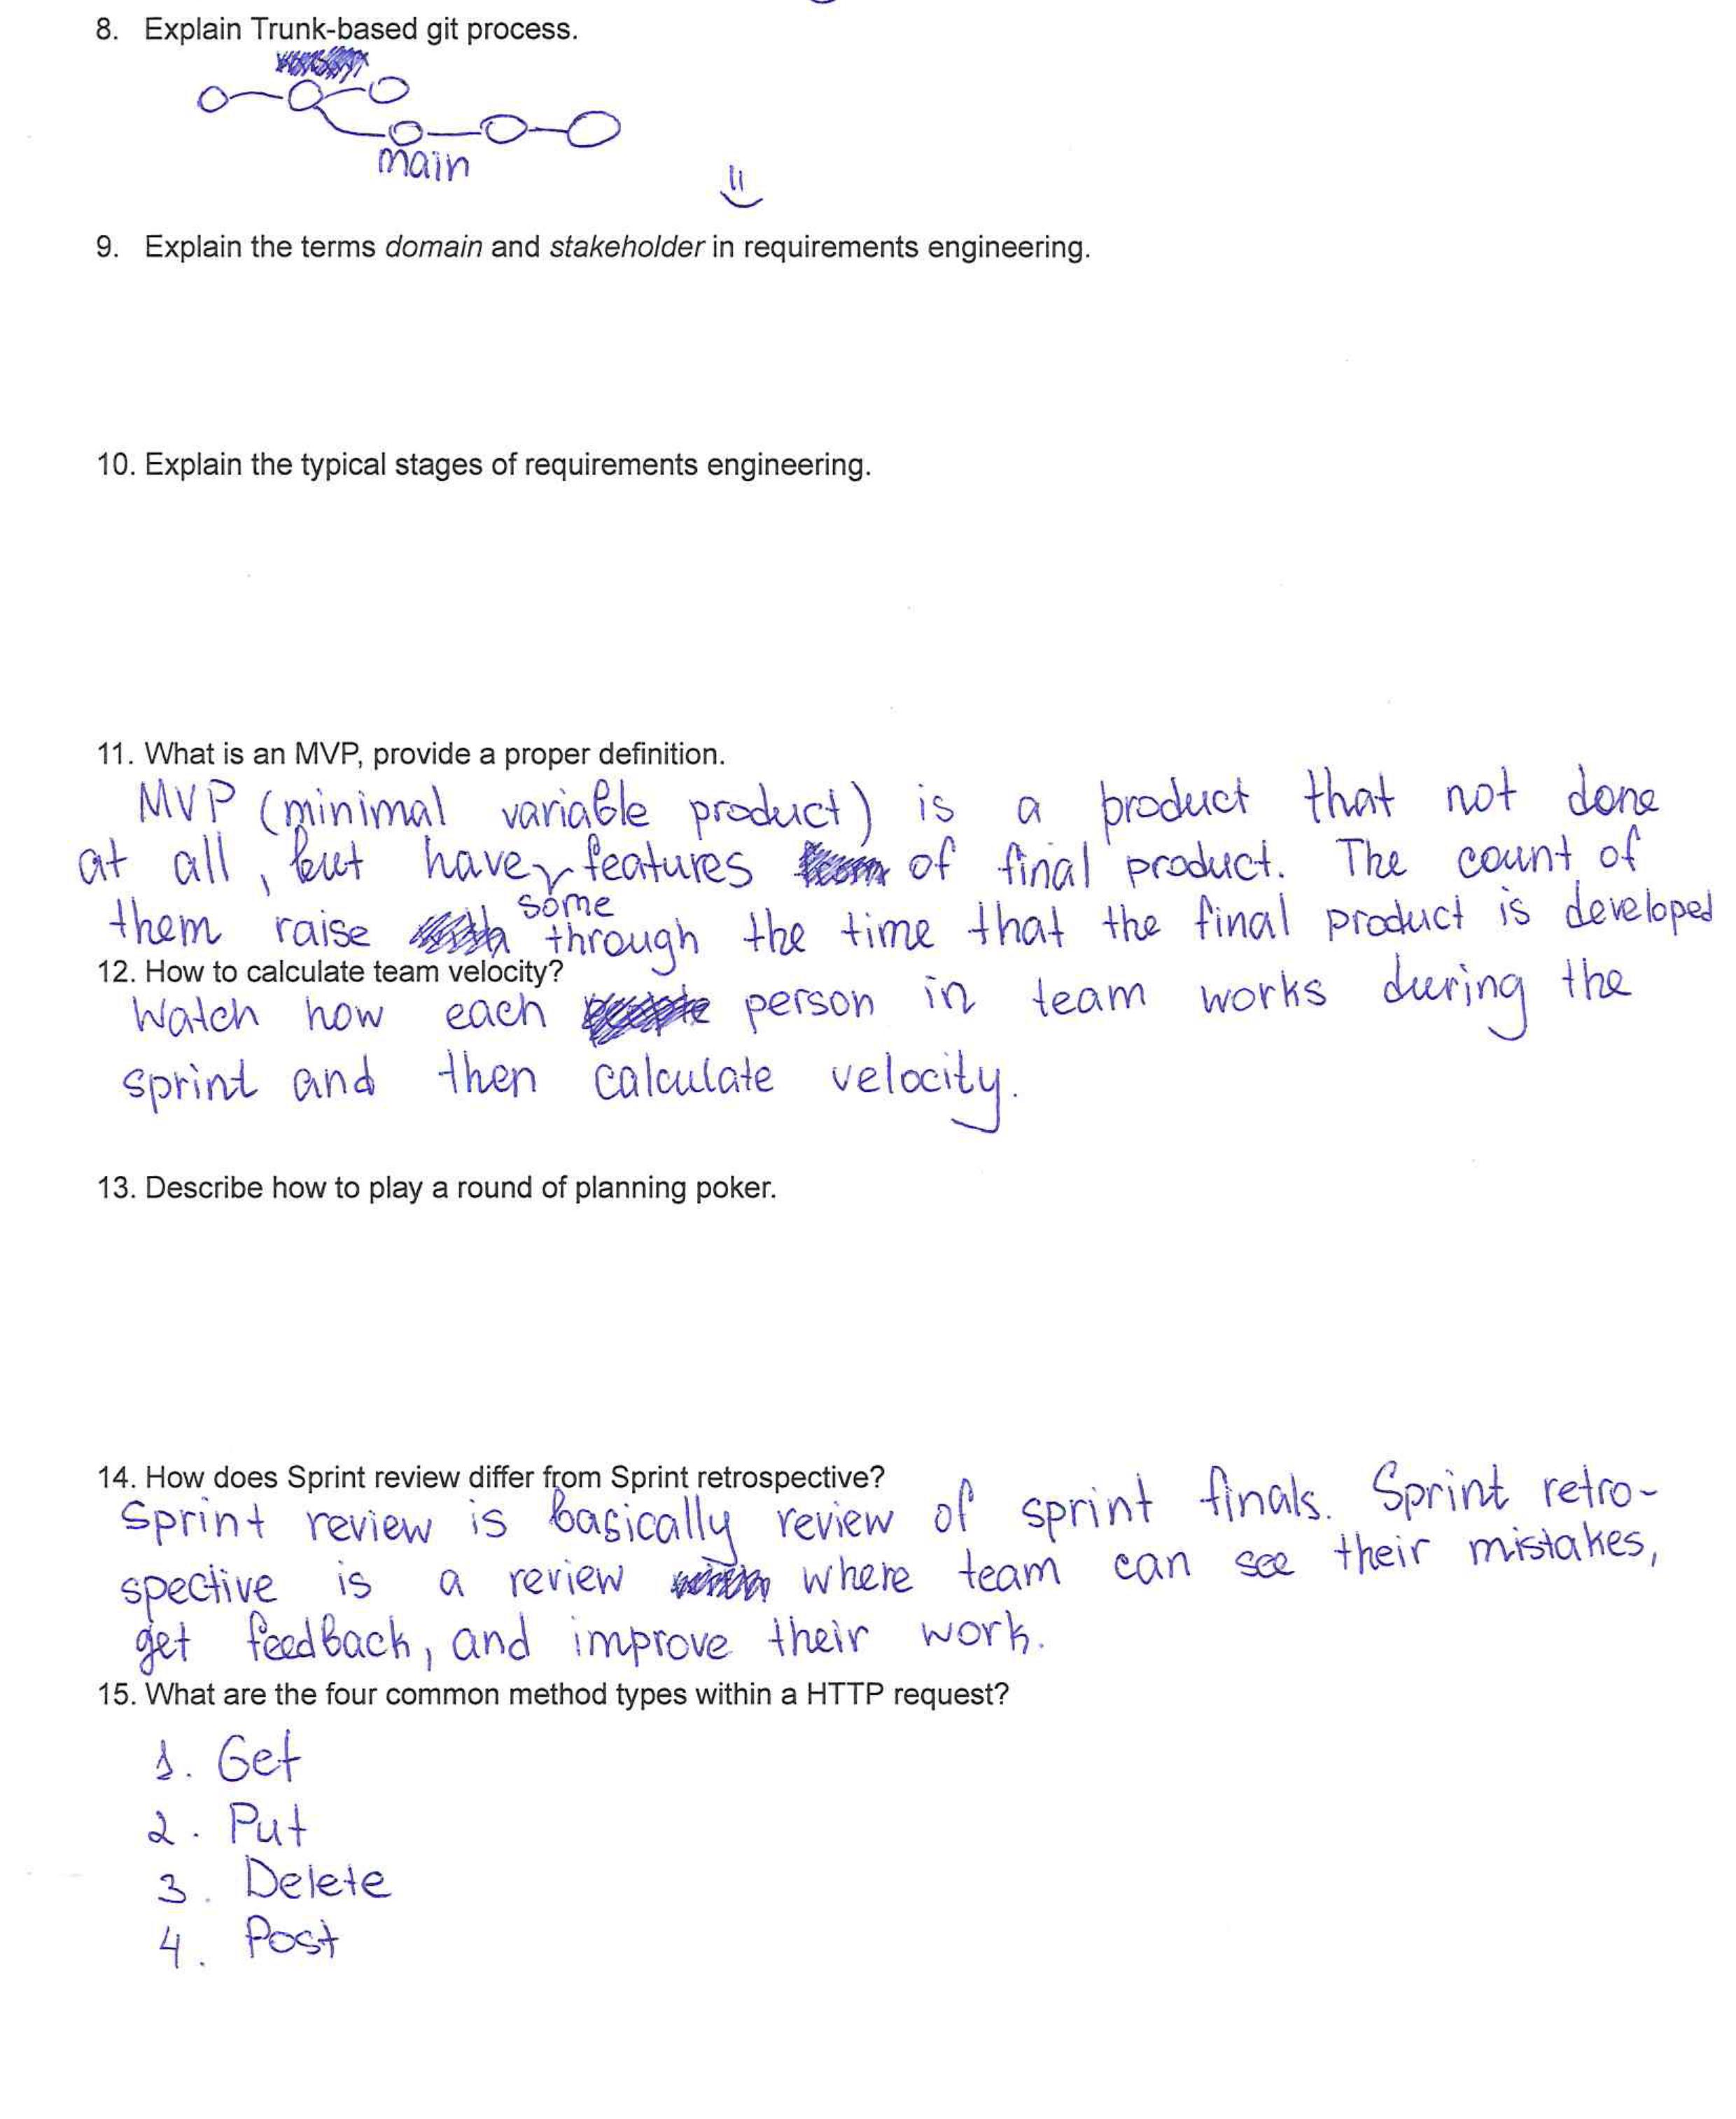 8. Explain Trunk-based git process.
main
9. Explain the terms domain and stakeholder in requirements engineering.
10. Explain the typical stages of requirements engineering.
11. What is an MVP, provide a proper definition.
MVP (minimal variable product) is a product that not done
at all, but have some features of final product. The count of
them raise through the time that the final product is developed
12. How to calculate team velocity?
Watch how each person in team works during the
sprint and then calculate velocity.
13. Describe how to play a round of planning poker.
14. How does Sprint review differ from Sprint retrospective?
Sprint review is basically review of sprint finals. Sprint retro-
spective is a review where team can see their mistakes,
get feedback, and improve their work.
15. What are the four common method types within a HTTP request?
1. Get
2. Put
3. Delete
4. Post